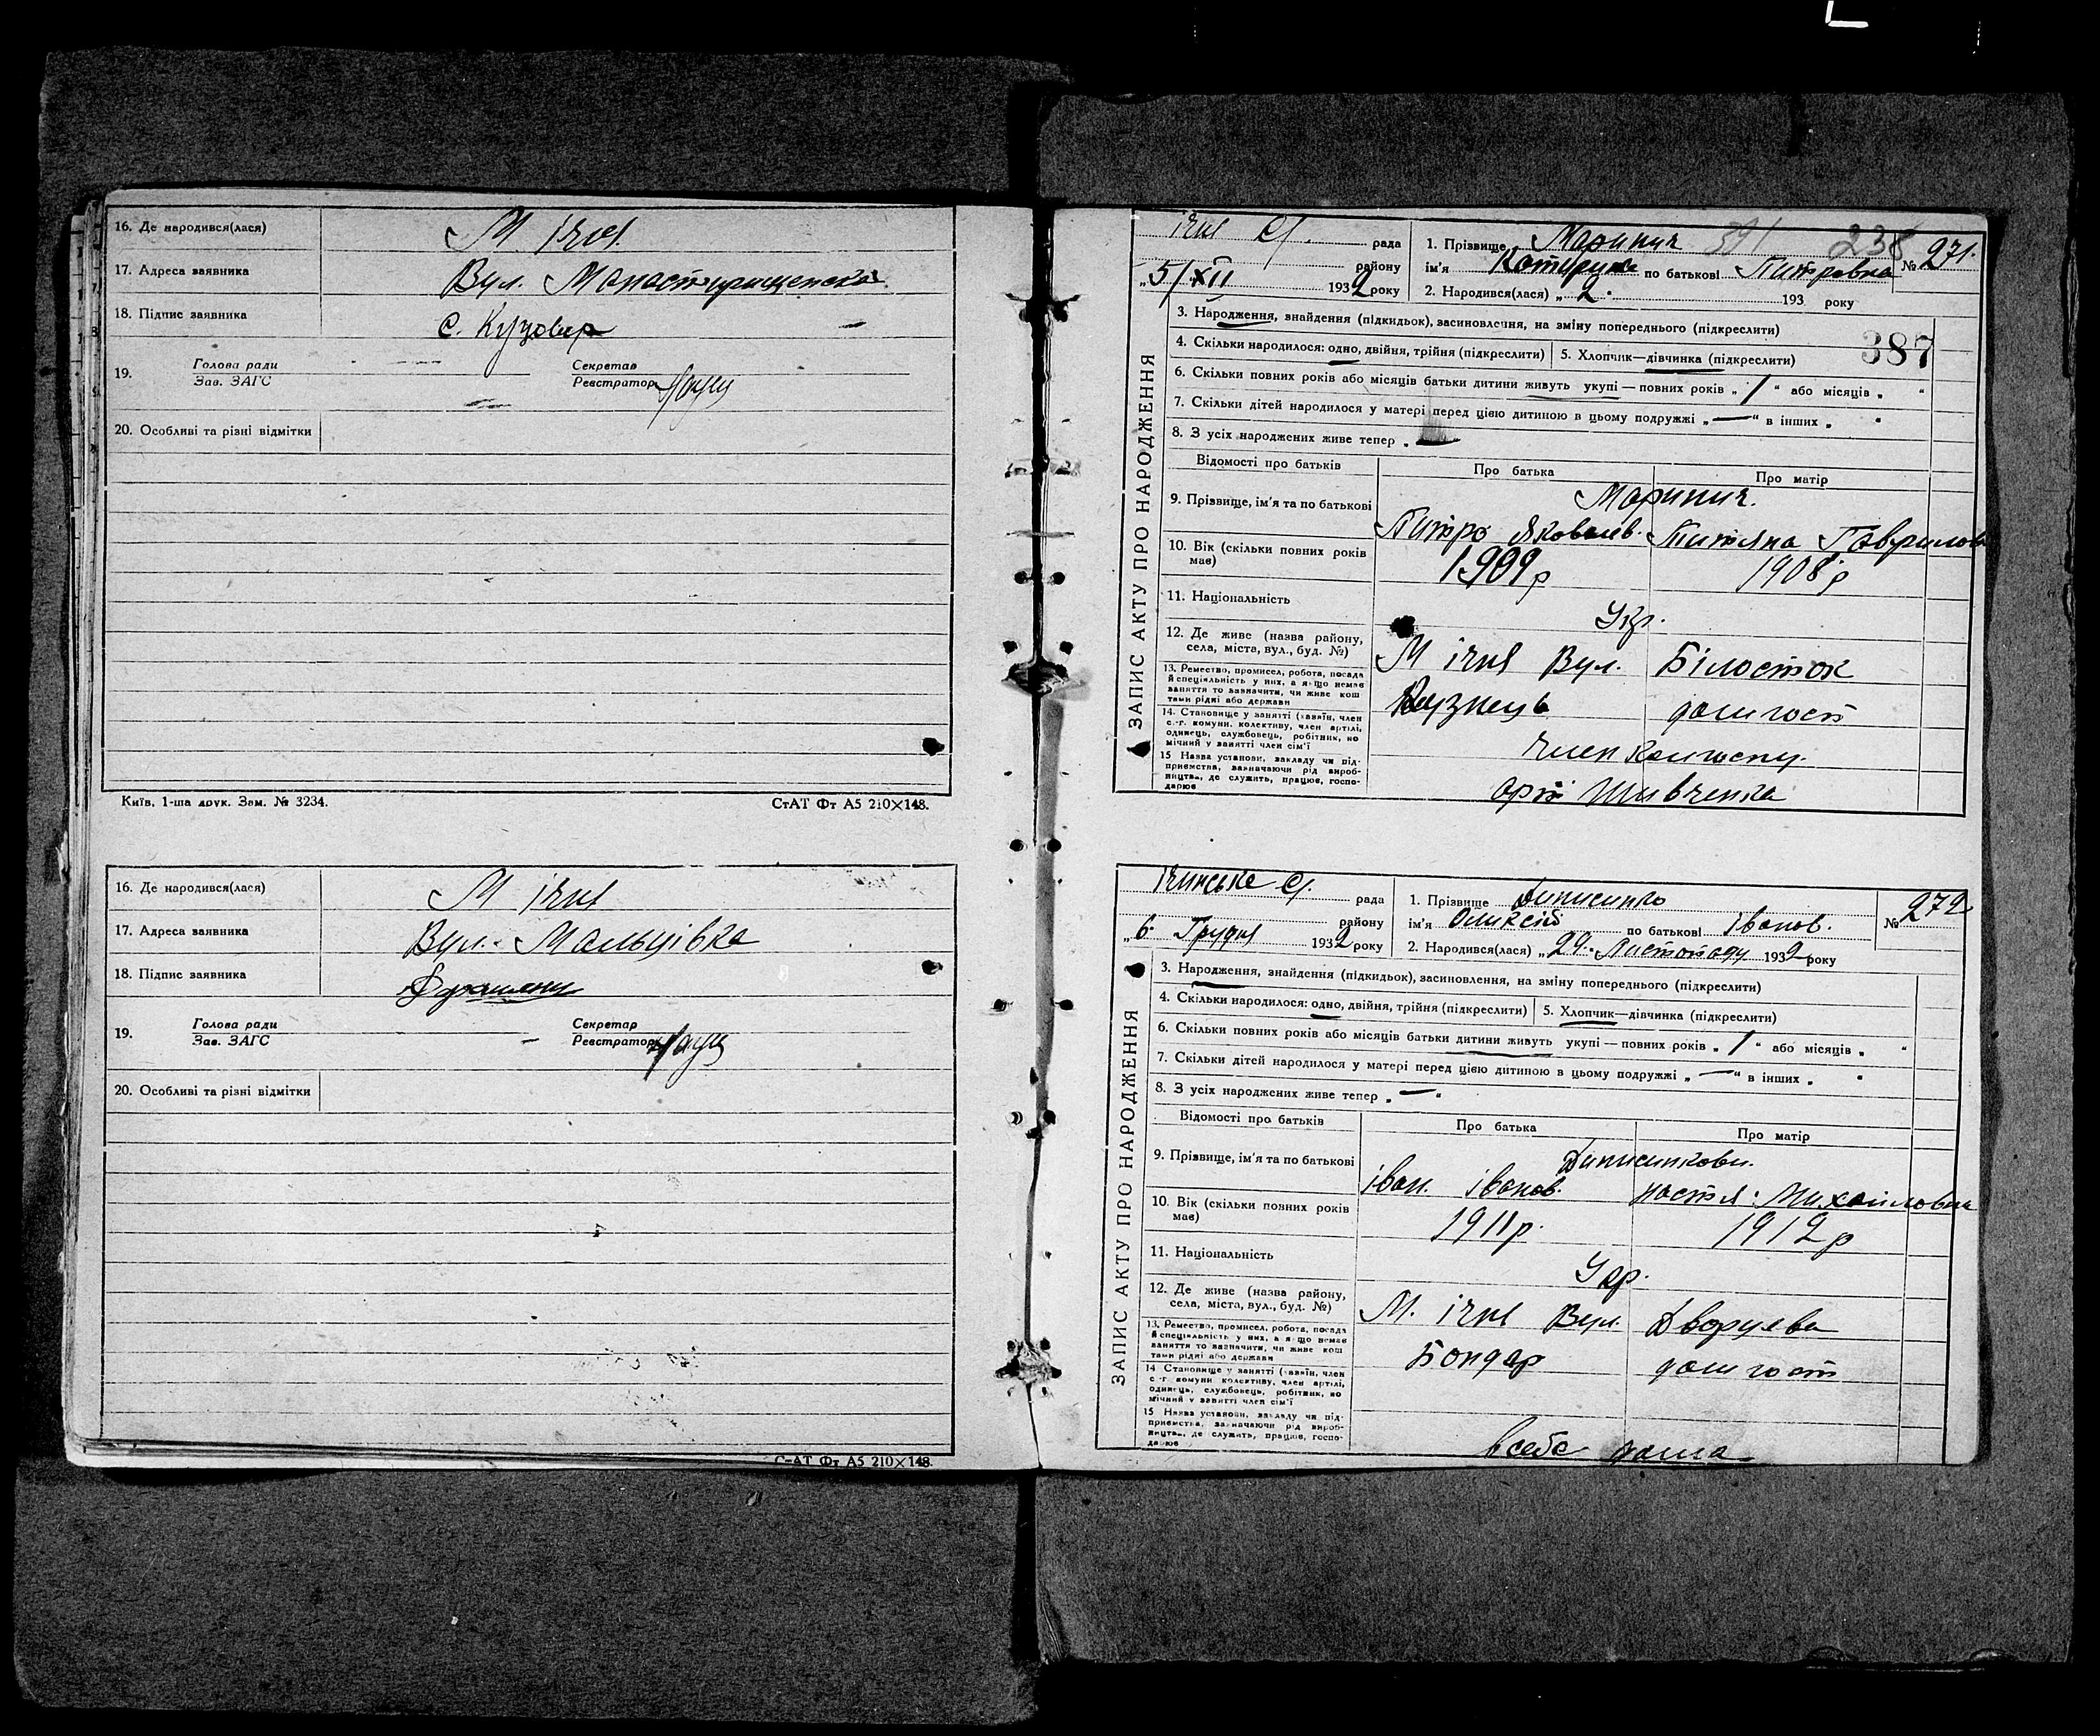 16. Де народився(лася) М Ічня
17. Адреса заявника Вул. Монастирищенска
18. Підпис заявника С. Кузовер
19. Голова ради Секретар
Зав. ЗАГС Реєстратор
20. Особливі та різні відмітки
Київ, 1-ша друк. Зам. № 3234. СтАТ Фт А5 210×148.
16. Де народився(лася) М Ічня
17. Адреса заявника Вул. Мальцівка
18. Підпис заявника
19. Голова ради Секретар
Зав. ЗАГС Реєстратор
20. Особливі та різні відмітки
СтАТ Фт А5 210×148.
ЗАПИС АКТУ ПРО НАРОДЖЕННЯ
рада
„5/XII району
1932 року
1. Прізвище Маринич 391 238 № 271.
ім'я Катерина по батькові Питровна
2. Народився(лася) „2. 193 року
3. Народження, знайдення (підкидьок), засиновлення, на зміну попереднього (підкреслити)
387
4. Скільки народилося: одно, двійня, трійня (підкреслити) 5. Хлопчик—дівчинка (підкреслити)
6. Скільки повних років або місяців батьки дитини живуть укупі — повних років „ 1 " або місяців „ "
7. Скільки дітей народилося у матері перед цією дитиною в цьому подружжі „ — " в інших „ "
8. З усіх народжених живе тепер „ —
Відомості про батьків Про батька Про матір
9. Прізвище, ім'я та по батькові Маринич.
Питро Яковлев. Титяна Гаврилов
10. Вік (скільки повних років має) 1909 р 1908 р
11. Національність Укр.
12. Де живе (назва району, села, міста, вул., буд. №) М Ічня Вул. Білосток
13. Ремество, промисел, робота, посада й спеціяльність у них, а якщо немає заняття то зазначити, чи живе коштами рідні або держави Кузнець домгосп
14. Становище у занятті (хазяїн, член с.-г. комуни, колективу, член артілі, одинець, службовець, робітник, помічний у занятті член сім'ї Член колгоспу.
15 Назва установи, закладу чи підприємства, зазначаючи рід виробництва, де служить, працює, господарює арт Шивченка
ЗАПИС АКТУ ПРО НАРОДЖЕННЯ
Ічнянська рада
„6. Грудня району
1932 року
1. Прізвище Динисинко № 272
ім'я Оликсій по батькові Іванов.
2. Народився(лася) „29. Листопаду 1932 року
3. Народження, знайдення (підкидьок), засиновлення, на зміну попереднього (підкреслити)
4. Скільки народилося: одно, двійня, трійня (підкреслити) 5. Хлопчик—дівчинка (підкреслити)
6. Скільки повних років або місяців батьки дитини живуть укупі — повних років „ 1 " або місяців „ "
7. Скільки дітей народилося у матері перед цією дитиною в цьому подружжі „ — " в інших „ "
8. З усіх народжених живе тепер „ — "
Відомості про батьків Про батька Про матір
9. Прізвище, ім'я та по батькові Динисинкови.
Іван. Іванов. Настя. Михайловна
10. Вік (скільки повних років має) 1911 р. 1912 р
11. Національність Укр.
12. Де живе (назва району, села, міста, вул., буд. №) М. Ічня Вул. Дворцева
13. Ремество, промисел, робота, посада й спеціяльність у них, а якщо немає заняття то зазначити, чи живе коштами рідні або держави Бондар домгосп
14 Становище у занятті (хазяїн, член с.-г комуни колективу, член артілі, одинець, службовець, робітник, помічний у занятті член сім'ї
15 Назва установи, закладу чи підприємства, зазначаючи рід виробництва, де служить, працює, господарює в себе дома